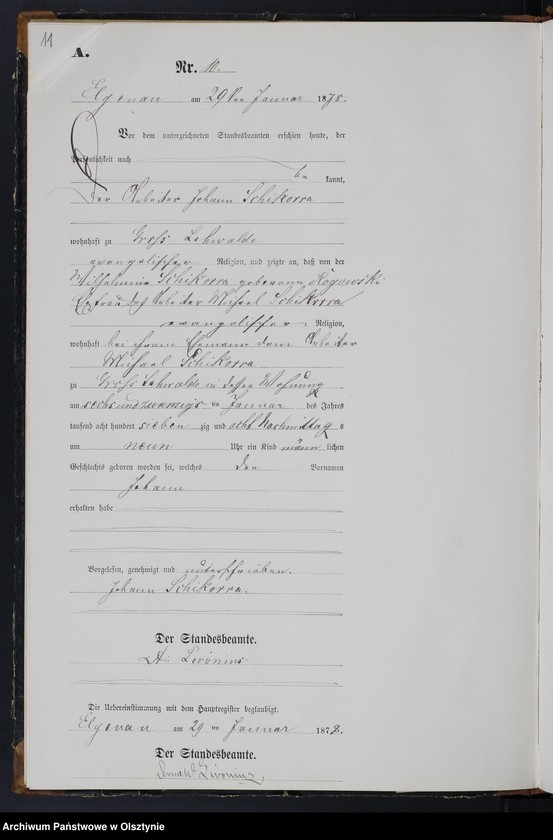 11
A.
Nr. 10.
Elgenau am 29ten Januar 1878.
Vor dem unterzeichneten Standesbeamten erschien heute, der
Persönlichkeit nach
be kannt,
der Arbeiter Johann Schikorra
wohnhaft zu Groß Lehwalde
evangelischer Religion, und zeigte an, daß von der
Wilhelmine Schikorra geborenen Rogowski
Ehefrau des Arbeiter Michael Schikorra
evangelischer Religion,
wohnhaft bei ihrem Ehemann dem Arbeiter
Michael Schikorra
zu Groß Lehwalde in dessen Wohnung
am sechs und zwanzigs ten Januar des Jahres
tausend acht hundert sieben zig und acht Nachmittag s
um neun Uhr ein Kind männ lichen
Geschlechts geboren worden sei, welches den Vornamen
Johann
erhalten habe
Vorgelesen, genehmigt und unterschrieben.
Johann Schikorra.
Der Standesbeamte.
Livonius.
Die Uebereinstimmung mit dem Hauptregister beglaubigt.
Elgenau am 29 ten Januar 1878.
Der Standesbeamte.
Livonius
Archiwum Państwowe w Olsztynie